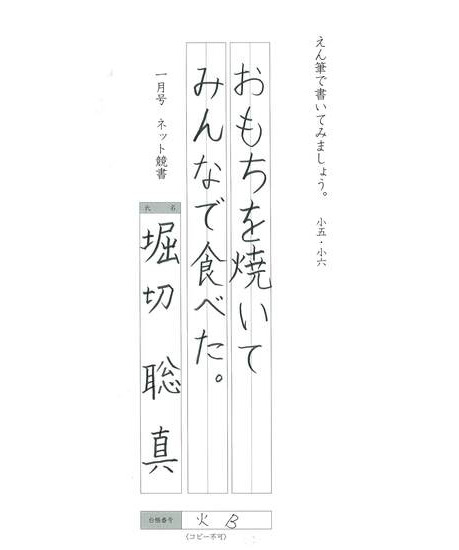 えん筆で書いてみましょう。 小五・小六
おもちを焼いて
みんなで食べた。
一月号 ネット競書
氏 名
堀切 聡真
台帳番号 火 B
〈コピー不可〉